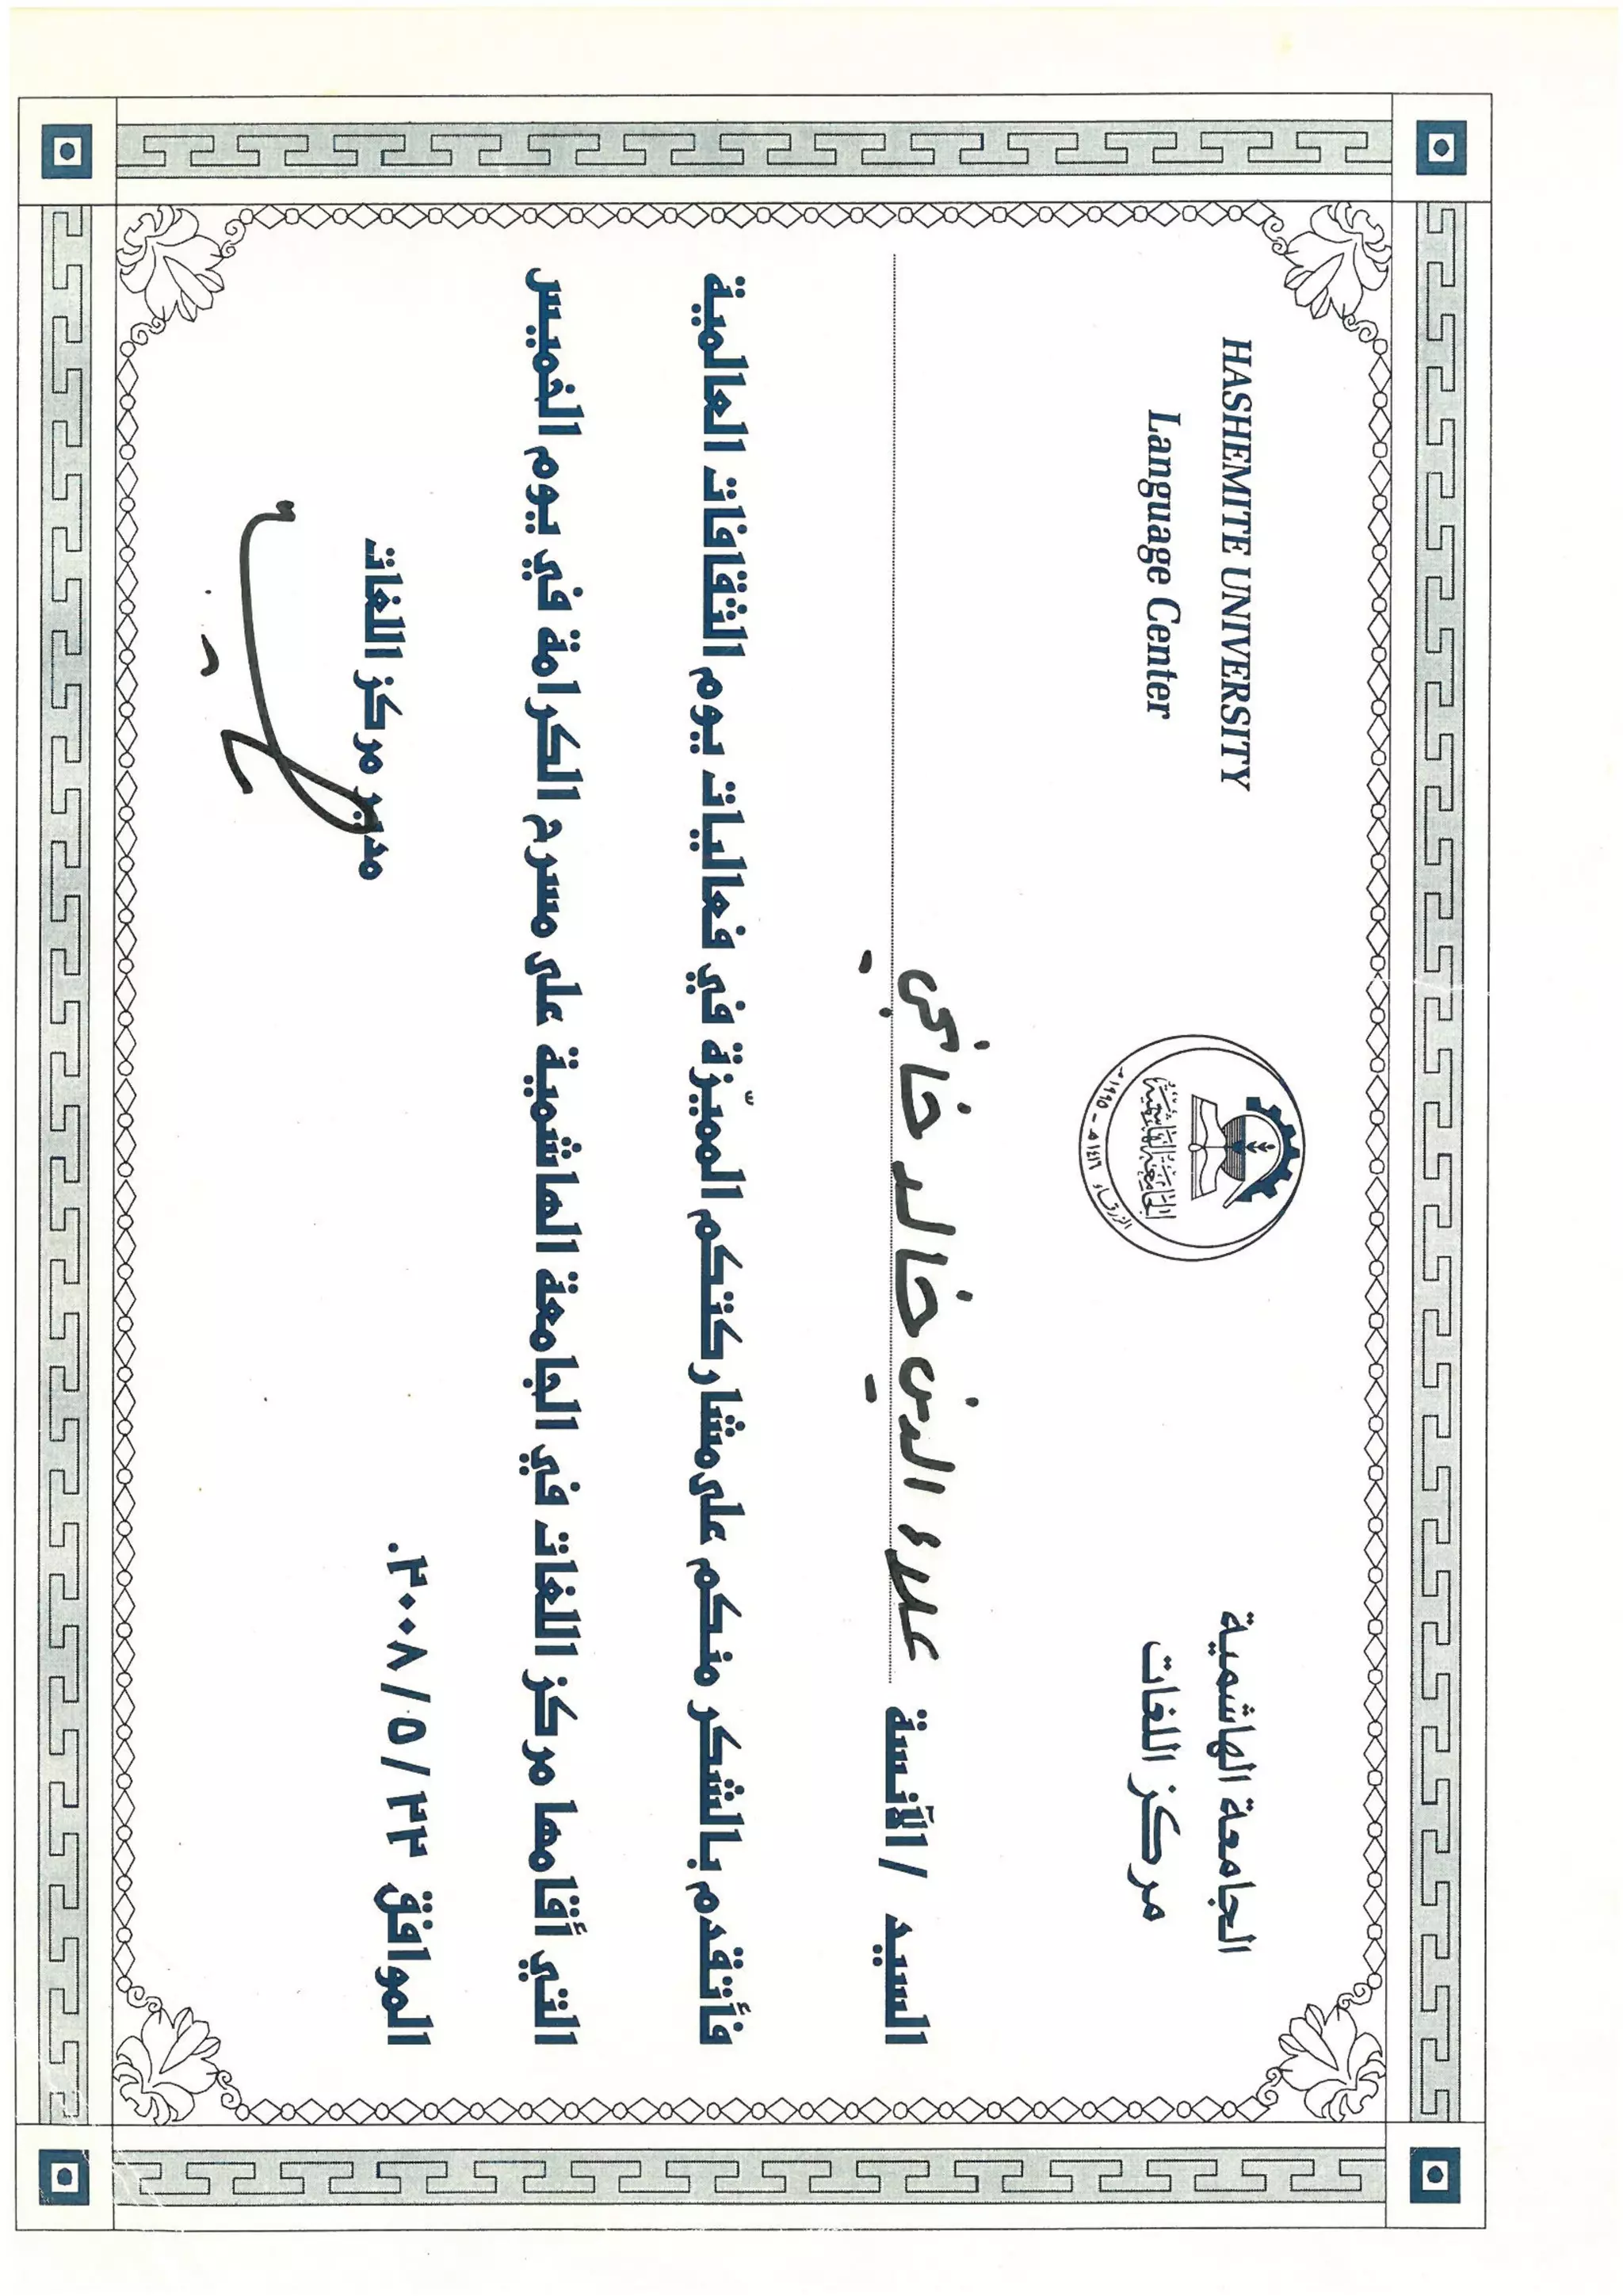 HASHEMITE UNIVERSITY
Language Center
الجامعة الهاشمية
مركز اللغات
الجامعة الهاشمية
الزرقاء ١٤١٦هـ - ١٩٩٥م
السيد / الآنسة علاء الدين خالد خا
فأتقدم بالشكر منكم على مشاركتكم المميّزة في فعاليات يوم الثقافات العالمية
التي أقامها مركز اللغات في الجامعة الهاشمية على مسرح الكرامة في يوم الخميس
الموافق ٢٢/ ٥/ ٢٠٠٨.
مدير مركز اللغات